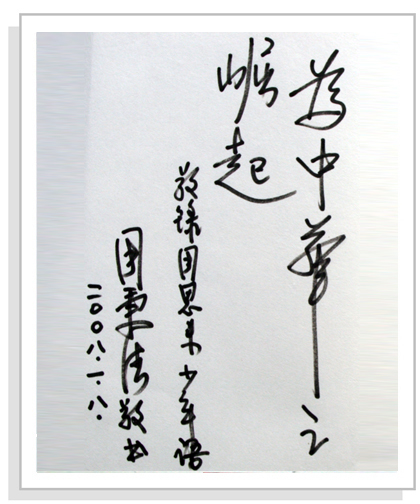 為中華之
崛起
敬録周恩来少年语
周秉德敬书
二〇〇八.一.八.